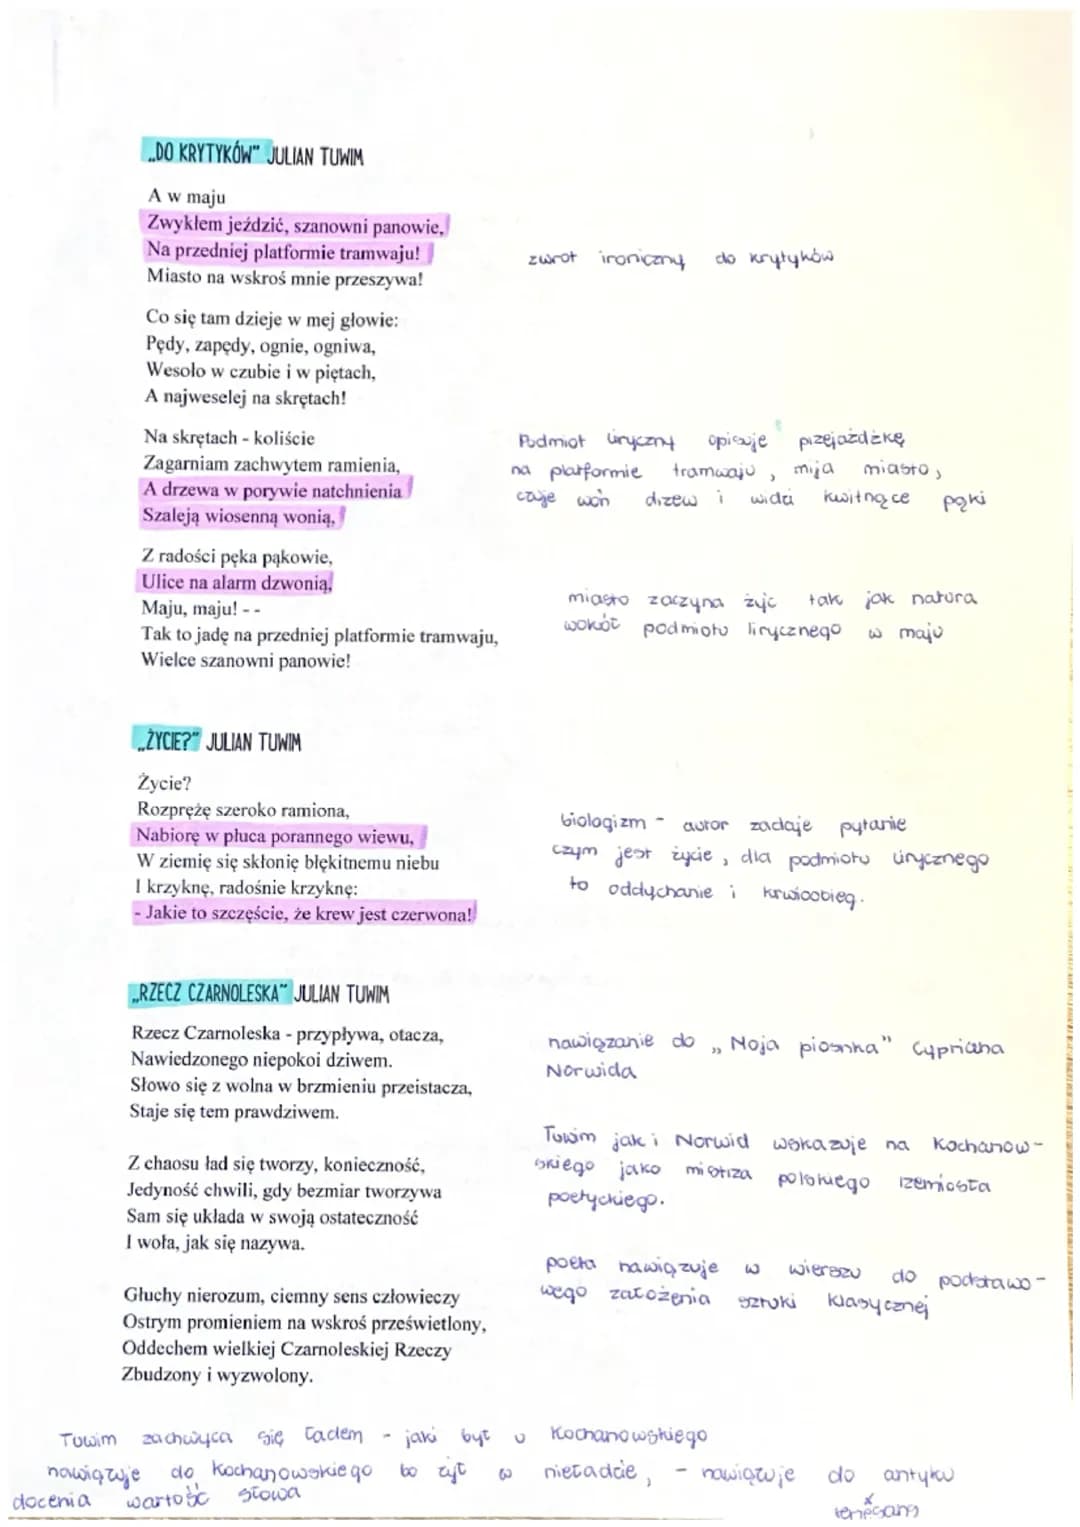 „DO KRYTYKÓW" JULIAN TUWIM
A w maju
Zwykłem jeździć, szanowni panowie,
Na przedniej platformie tramwaju!
Miasto na wskroś mnie przeszywa!
zwrot ironiczny do krytyków
Co się tam dzieje w mej głowie:
Pędy, zapędy, ognie, ogniwa,
Wesoło w czubie i w piętach,
A najweselej na skrętach!
Na skrętach - koliście
Zagarniam zachwytem ramienia,
A drzewa w porywie natchnienia
Szaleją wiosenną wonią,
Podmiot liryczny opisuje przejażdżkę
na platformie tramwaju, mija miasto,
czuje woń drzew i widzi kwitnące pąki
Z radości pęka pąkowie,
Ulice na alarm dzwonią,
Maju, maju! - -
Tak to jadę na przedniej platformie tramwaju,
Wielce szanowni panowie!
miasto zaczyna żyć tak jak natura
wokół podmiotu lirycznego w maju
„ŻYCIE?" JULIAN TUWIM
Życie?
Rozprężę szeroko ramiona,
Nabiorę w płuca porannego wiewu,
W ziemię się skłonię błękitnemu niebu
I krzyknę, radośnie krzyknę:
- Jakie to szczęście, że krew jest czerwona!
biologizm - autor zadaje pytanie
czym jest życie, dla podmiotu lirycznego
to oddychanie i krwioobieg.
„RZECZ CZARNOLESKA" JULIAN TUWIM
Rzecz Czarnoleska - przypływa, otacza,
Nawiedzonego niepokoi dziwem.
Słowo się z wolna w brzmieniu przeistacza,
Staje się tem prawdziwem.
nawiązanie do „Moja piosnka" Cypriana
Norwida
Z chaosu ład się tworzy, konieczność,
Jedyność chwili, gdy bezmiar tworzywa
Sam się układa w swoją ostateczność
I woła, jak się nazywa.
Tuwim jak i Norwid wskazuje na Kochanow-
skiego jako mistrza polskiego rzemiosła
poetyckiego.
Głuchy nierozum, ciemny sens człowieczy
Ostrym promieniem na wskroś prześwietlony,
Oddechem wielkiej Czarnoleskiej Rzeczy
Zbudzony i wyzwolony.
poeta nawiązuje w wierszu do podstawo-
wego założenia sztuki klasycznej
Tuwim zachwyca się ładem - jaki był u Kochanowskiego
nawiązuje do Kochanowskiego bo żył w nieładzie, - nawiązuje do antyku
docenia wartość słowa